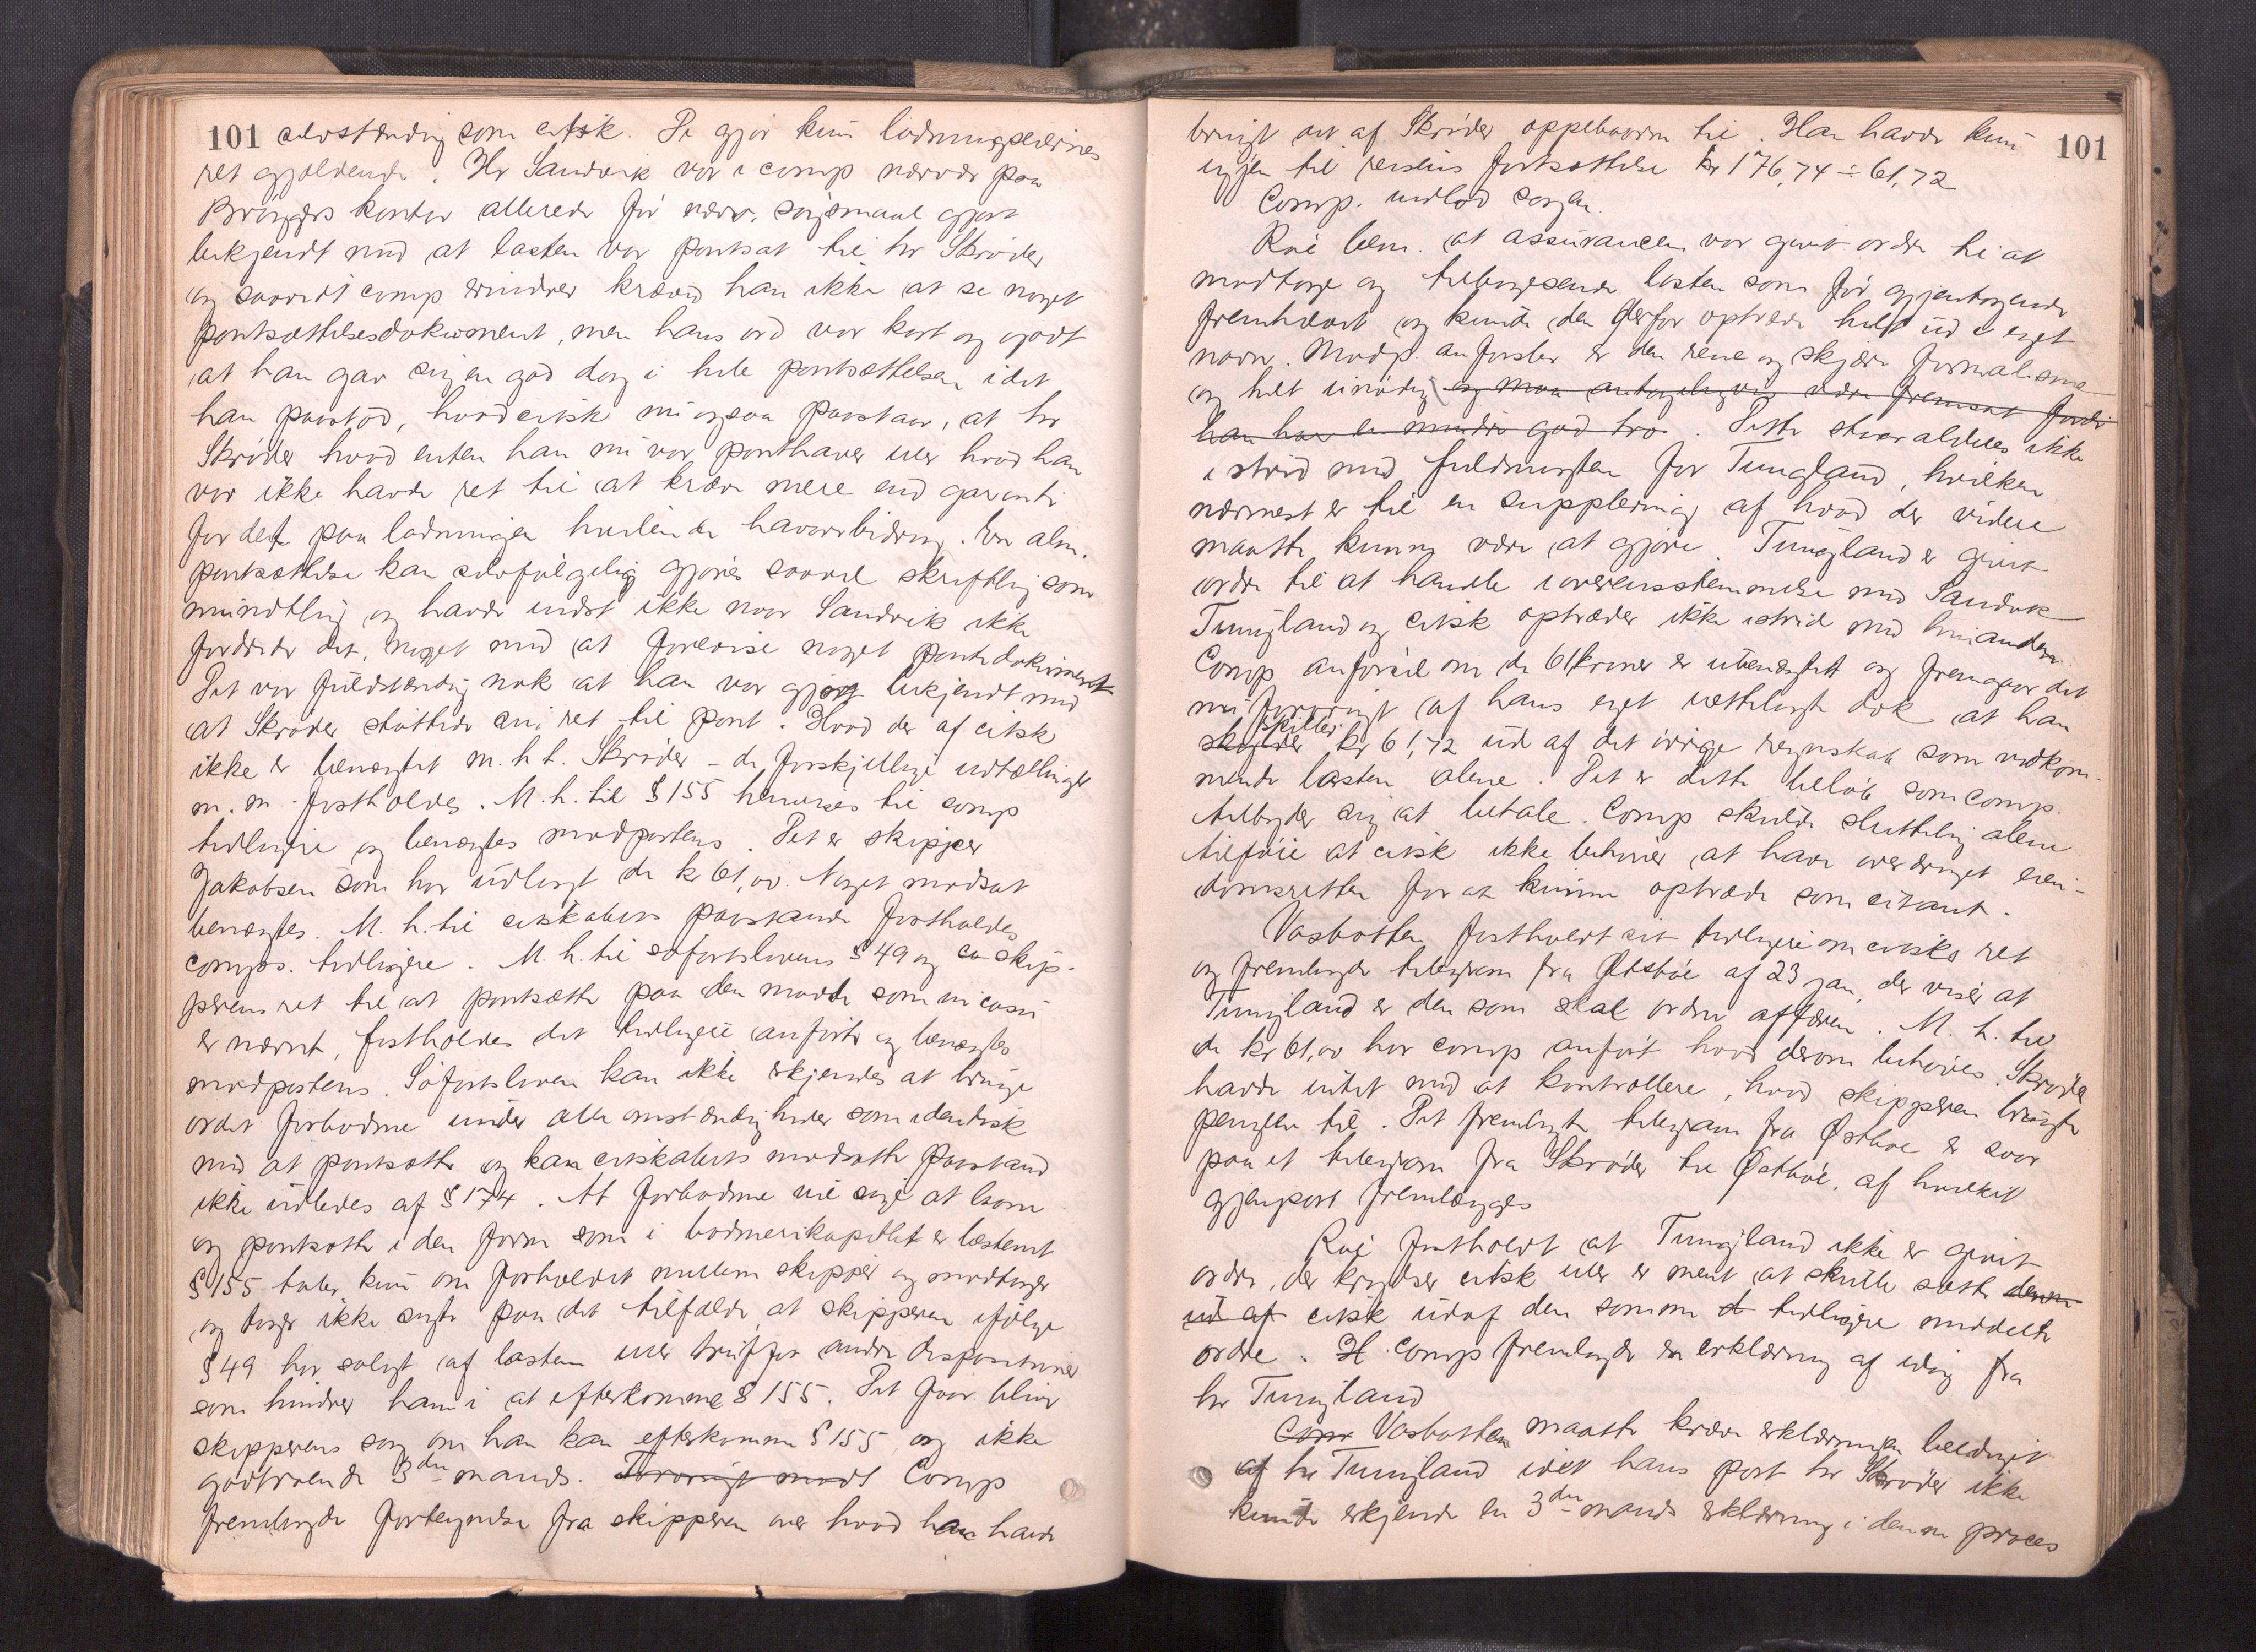 101 selvstændig som citsk. De gjør kun ladningseiernes
ret gjældende. Hr Sandvik var i comp nærvær paa
kontor allerede før nærv. søgsmaal gjort
bekjendt med at lasten var pantsat til hr Skrøder
og saavidt comp erindrer kræved han ikke at se noget
pantsættelsesdokument, men hans ord var kort og godt
at han gav sig en god dag i hele pantsættelsen idet
han paastod, hvad citsk nu ogsaa paastaar, at hr
Skrøder hvad enten han nu var panthaver eller hvad han
var ikke havde ret til at kræve mere end garanti
for det paa ladningen hvilende havaribidrag. En alm.
pantsættelse kan selvfølgelig gjøres saavel skriftlig som
mundtlig og havde indst ikke naar Sandvik ikke
fordrede det, noget med at forevise noget pantedokument
Det var fuldstændig nok at han var gjort bekjendt med
at Skrøder støttede sin ret til pant. Hvad der af citsk
ikke er benægtet m. h. t. Skrøder – de forskjellige udtællinger
m. m. fastholdes. M. h. til § 155 henvises til comp
tidligere og benægtes modpartens. Det er skipper
Jakobsen som har udlagt de kr 61,00. Noget modsat
benægtes. M. h. til citskabets paastande fastholdes
comps. tidligere. M. h. til søfartslovens § 49 og skip-
perens ret til at pantsætte paa den maade som in casu
er nævnt, fastholdes det tidligere anførte og benægtes
modpartens. Søfartsloven kan ikke erkjendes at bruge
ordet forbodme under alle omstændigheder som identisk
med at pantsætte og kan citskabets modsatte paastand
ikke udledes af § 174. At forbodme vil sige at laane
og pantsætte i den form som i bodmerikapitlet er bestemt
§ 155 taler kun om forholdet mellem skipper og modtager
og tager ikke sigte paa det tilfælde, at skipperen ifølge
§ 49 har solgt af lasten eller truffet andre dispositioner
som hindrer ham i at efterkomme § 155. Det faar blive
skipperens sag om han kan efterkomme § 155 og ikke
godtroende 3die mands. Comp
fremlagde fortegnelse fra skipperen over hvad han havde
101
brugt det af Skrøder oppebaarne til. Han havde kun
igjen til reisens fortsættelse kr 176,74 ÷ 61,72
Comp. indlod sagen.
Roe bem. at assurancen var givet ordre til at
modtage og tilbagesende lasten som før gjentagende
fremhævet og kunde den derfor optræde helt ud i eget
navn. Modp. anførsler er den rene og skjære formalisme
og helt unødig og maa antageligvis være fremsat fordi
han har en mindre god tro. Dette strider aldeles ikke
i strid med fuldmagten for Tungland, hvilken
nærmest er til en supplering af hvad der videre
maatte kunne være at gjøre. Tungland er givet
ordre til at handle i overensstemmelse med Sandvik
Tungland og citsk optræder ikke i strid med hinanden.
Comp anførsel om de 61 kroner er ubenægtet og fremgaar det
nu forøvrigt af hans eget vedlagte dok at han
skiller kr 61,72 ud af det øvrige regnskab som vedkom-
mende lasten alene. Det er dette beløb som comp.
tilbyder sig at betale. Comp skulde sluttelig alene
tilføie at citsk ikke behøver at have overdraget eien-
domsretten for at kunne optræde som citant.
Vasbotten fastholdt sit tidligere om citsks ret
og fremlagde telegram fra Østbøe af 23 jan, der viser at
Tungland er den som skal ordne affæren. M. h. til
de kr 61,00 har comp anført hvad derom behøves. Skrøder
havde intet med at kontrollere, hvad skipperen brugte
pengene til. Det fremlagte telegram fra Østbøe er svar
paa et telegram fra Skrøder til Østbøe, af hvilket
gjenpart fremlægges
Roe fastholdt at Tungland ikke er givet
ordre, der krydser citsk eller er ment at skulle sætte denne
ud af citsk udaf den samme tidligere meddelte
ordre. Comp fremlagde en erklæring af idag fra
hr Tungland
Comp Vasbotten maatte kræve erklæringen beediget
af hr Tungland idet hans part hr Skrøder ikke
kunde erkjende en 3die mands erklæring i denne proces